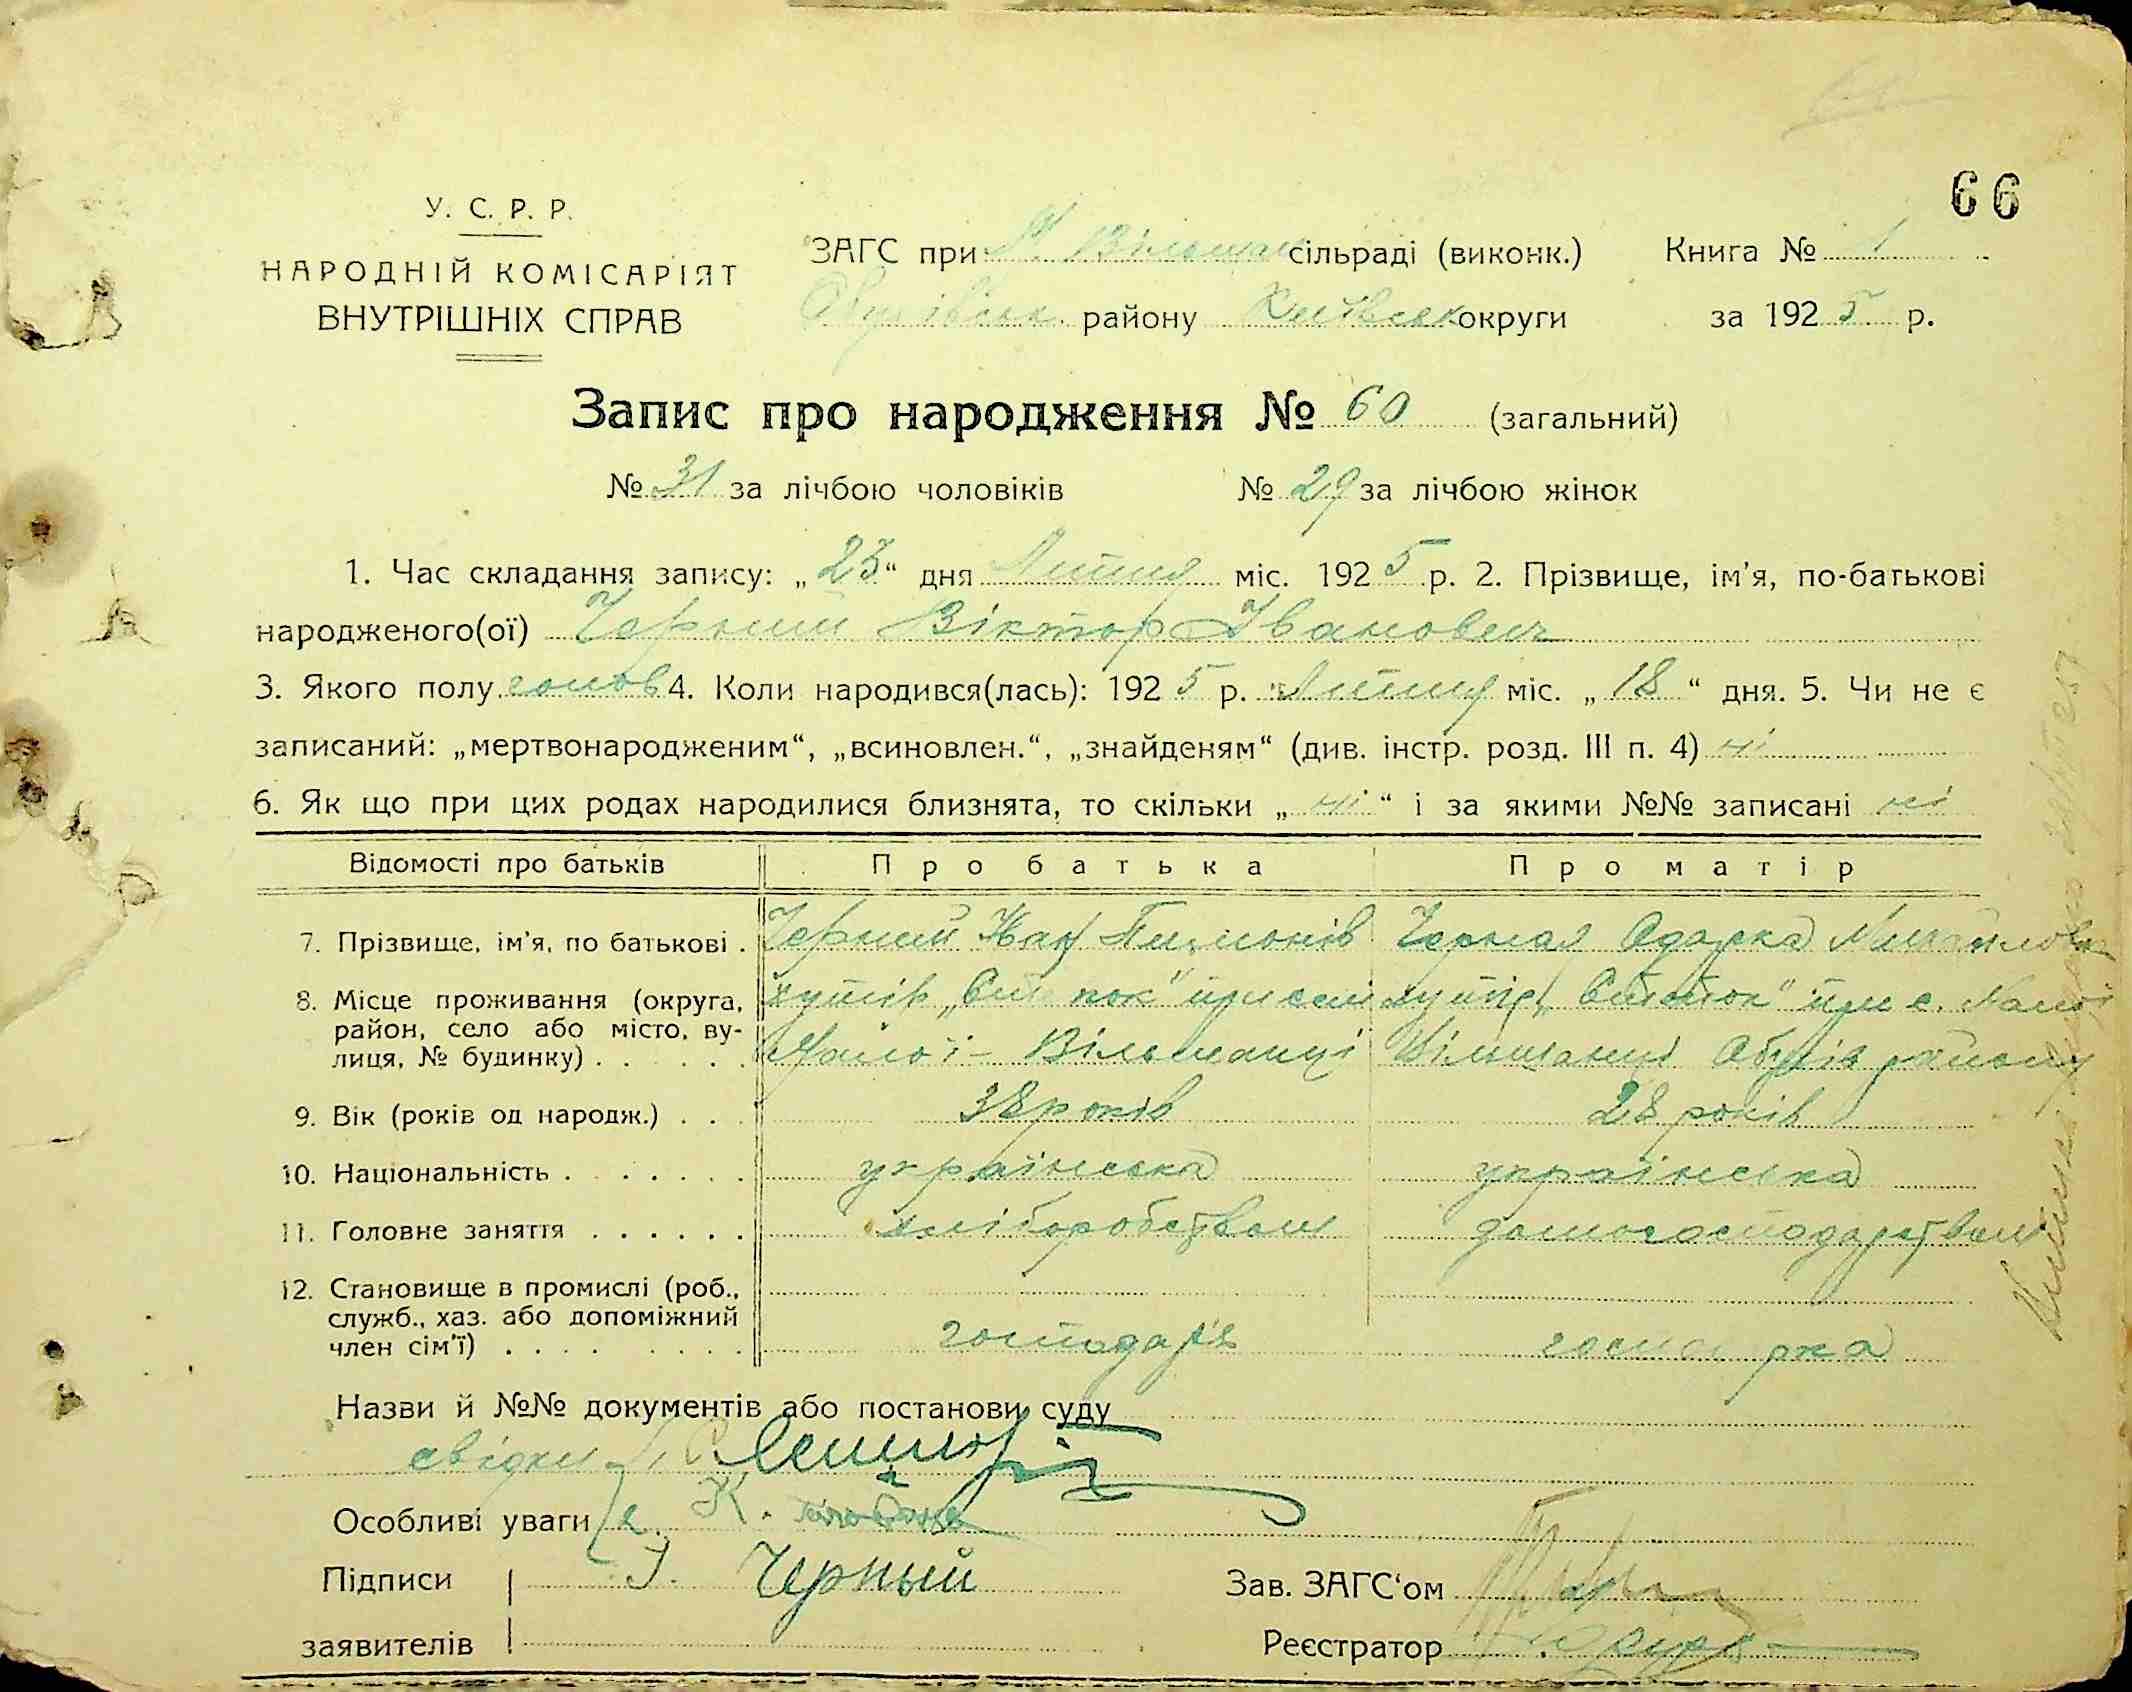 66
У. С. Р. Р.
НАРОДНІЙ КОМІСАРІЯТ
ВНУТРІШНІХ СПРАВ
ЗАГС при М. Вільшан сільраді (виконк.) Книга № 1
Обухівськ. району Київськ округи за 1925 р.
Запис про народження № 60 (загальний)
№ 31 за лічбою чоловіків № 29 за лічбою жінок
1. Час складання запису: „23“ дня Липня міс. 1925 р. 2. Прізвище, ім'я, по-батькові
народженого(ої) Черний Віктор Іванович
3. Якого полу чолов 4. Коли народився(лась): 1925 р. Липня міс. „18“ дня. 5. Чи не є
записаний: „мертвонародженим“, „всиновлен.“, „знайденям“ (див. інстр. розд. III п. 4) ні
6. Як що при цих родах народилися близнята, то скільки „ні“ і за якими №№ записані ні
Відомості про батьків Про батька Про матір
7. Прізвище, ім'я, по батькові . Черний Іван Черная Одарка Михайлова
8. Місце проживання (округа, район, село або місто, вулиця, № будинку) . . . . . .
хутір при селі хутір при с. Малої
Малої-Вільшанці Вільшанці Обухів району
9. Вік (років од народж.) . . . 38 років 28 років
10. Національність . . . . . . . українська українська
11. Головне заняття . . . . . . хліборобством домогосподарством
12. Становище в промислі (роб.,
служб., хаз. або допоміжний
член сім'ї) . . . . . . . . . господарь госпо рка
Назви й №№ документів або постанови суду
свідки
Особливі уваги 2. К.
Підписи І. Черный Зав. ЗАГС‘ом
заявителів Реєстратор